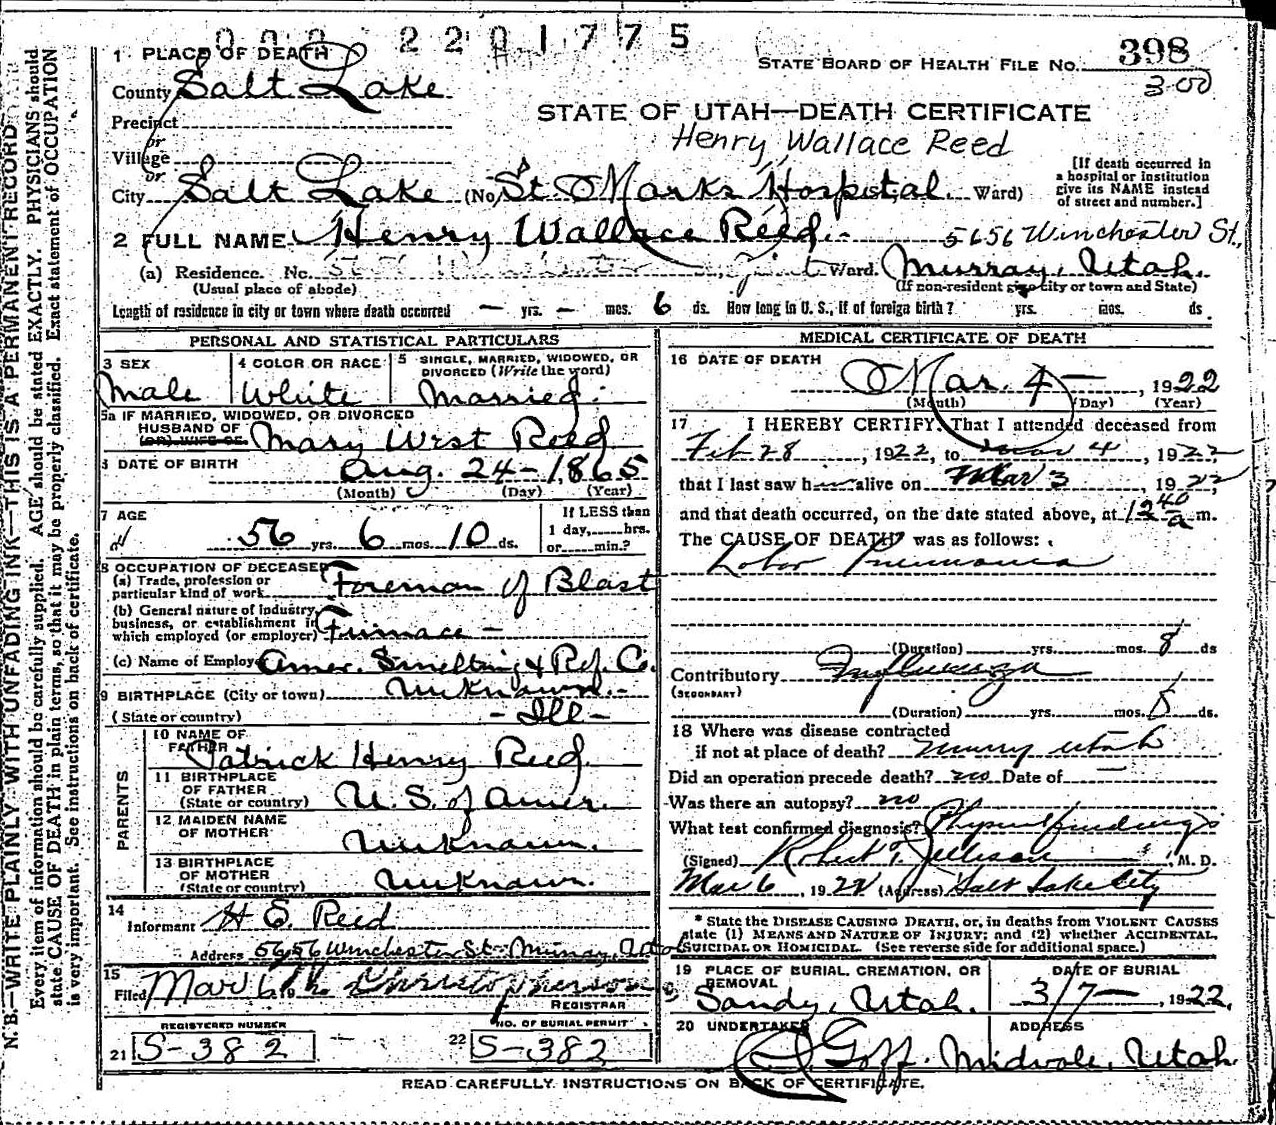 2201775
STATE BOARD OF HEALTH FILE No. 398
300
1 PLACE OF DEATH
County Salt Lake
STATE OF UTAH—DEATH CERTIFICATE
Precinct
or
Henry Wallace Reed
Village
or
City Salt Lake (No. St Marks Hospital. Ward)
[If death occurred in
a hospital or institution
give its NAME instead
of street and number.]
2 FULL NAME Henry Wallace Reed.
5656 Winchester St.,
(a) Residence. No. Ward. Murray, Utah.
(Usual place of abode) (If non-resident give city or town and State)
Length of residence in city or town where death occurred — yrs. — mos. 6 ds. How long in U. S., if of foreign birth? yrs. mos. ds.
PERSONAL AND STATISTICAL PARTICULARS
3 SEX Male
4 COLOR OR RACE White
5 SINGLE, MARRIED, WIDOWED, OR
DIVORCED (Write the word)
Married.
5a IF MARRIED, WIDOWED, OR DIVORCED
HUSBAND OF
(OR) WIFE OF Mary West Reed
6 DATE OF BIRTH Aug. 24-1865
(Month) (Day) (Year)
7 AGE
56 yrs. 6 mos. 10 ds.
If LESS than
1 day, hrs.
or min.?
8 OCCUPATION OF DECEASED
(a) Trade, profession or
particular kind of work Foreman of Blast
(b) General nature of industry,
business, or establishment in
which employed (or employer) Furnace -
(c) Name of Employer Amer. Smelting & Ref. Co.
9 BIRTHPLACE (City or town) Unknown.-
(State or country) - Ill -
PARENTS
10 NAME OF
FATHER Patrick Henry Reed.
11 BIRTHPLACE
OF FATHER
(State or country) U. S. of Amer.
12 MAIDEN NAME
OF MOTHER Unknown.
13 BIRTHPLACE
OF MOTHER
(State or country) Unknown.
14
Informant H E Reed
Address 5656 Winchester St- Murray, Utah
15
Filed Mar 6 19 Christopherson
REGISTRAR
REGISTERED NUMBER
21 S-382
NO. OF BURIAL PERMIT
22 S-382
MEDICAL CERTIFICATE OF DEATH
16 DATE OF DEATH
Mar. 4 — , 1922
(Month) (Day) (Year)
17 I HEREBY CERTIFY, That I attended deceased from
Feb 28, 1922, to Mar 4, 1922
that I last saw him alive on Mar 3, 1922,
and that death occurred, on the date stated above, at 12 40 a m.
The CAUSE OF DEATH* was as follows:
Lobar Pneumonia
(Duration) yrs. mos. 8 ds
Contributory Influenza
(SECONDARY)
(Duration) yrs. mos. ds.
18 Where was disease contracted
if not at place of death? Murry Utah
Did an operation precede death? no Date of —
Was there an autopsy? no
What test confirmed diagnosis? Physical findings
(Signed) Robert T. Jellison, M. D.
Mar 6, 1922 (Address) Salt Lake City
* State the DISEASE CAUSING DEATH, or, in deaths from VIOLENT CAUSES
state (1) MEANS AND NATURE OF INJURY; and (2) whether ACCIDENTAL,
SUICIDAL OR HOMICIDAL. (See reverse side for additional space.)
19 PLACE OF BURIAL, CREMATION, OR
REMOVAL
Sandy, Utah.
DATE OF BURIAL
3/7— , 1922.
20 UNDERTAKER
Goff.
ADDRESS
Midvale, Utah.
READ CAREFULLY INSTRUCTIONS ON BACK OF CERTIFICATE.
N. B.—WRITE PLAINLY WITH UNFADING INK—THIS IS A PERMANENT RECORD
Every item of information should be carefully supplied. AGE should be stated EXACTLY. PHYSICIANS should
state CAUSE OF DEATH in plain terms, so that it may be properly classified. Exact statement of OCCUPATION
is very important. See instructions on back of certificate.